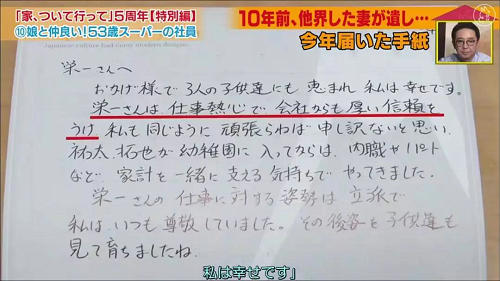 「家、ついて行って」5周年【特別編】
⑩娘と仲良い!53歳スーパーの社員
10年前、他界した妻が遺し…
今年届いた手紙
栄一さんへ
おかげ様で3人の子供達にも恵まれ私は幸せです。
栄一さんは仕事熱心で会社からも厚い信頼を
うけ私も同じように頑張らねば申し訳ないと思い
祐太、拓也が幼稚園に入ってからは、内職やパート
など家計を一緒に支える気持ちでやってきました。
栄一さんの仕事に対する姿勢は立派で
私はいつも尊敬していました。その後姿を子供達も
見て育ちましたね
私は幸せです」